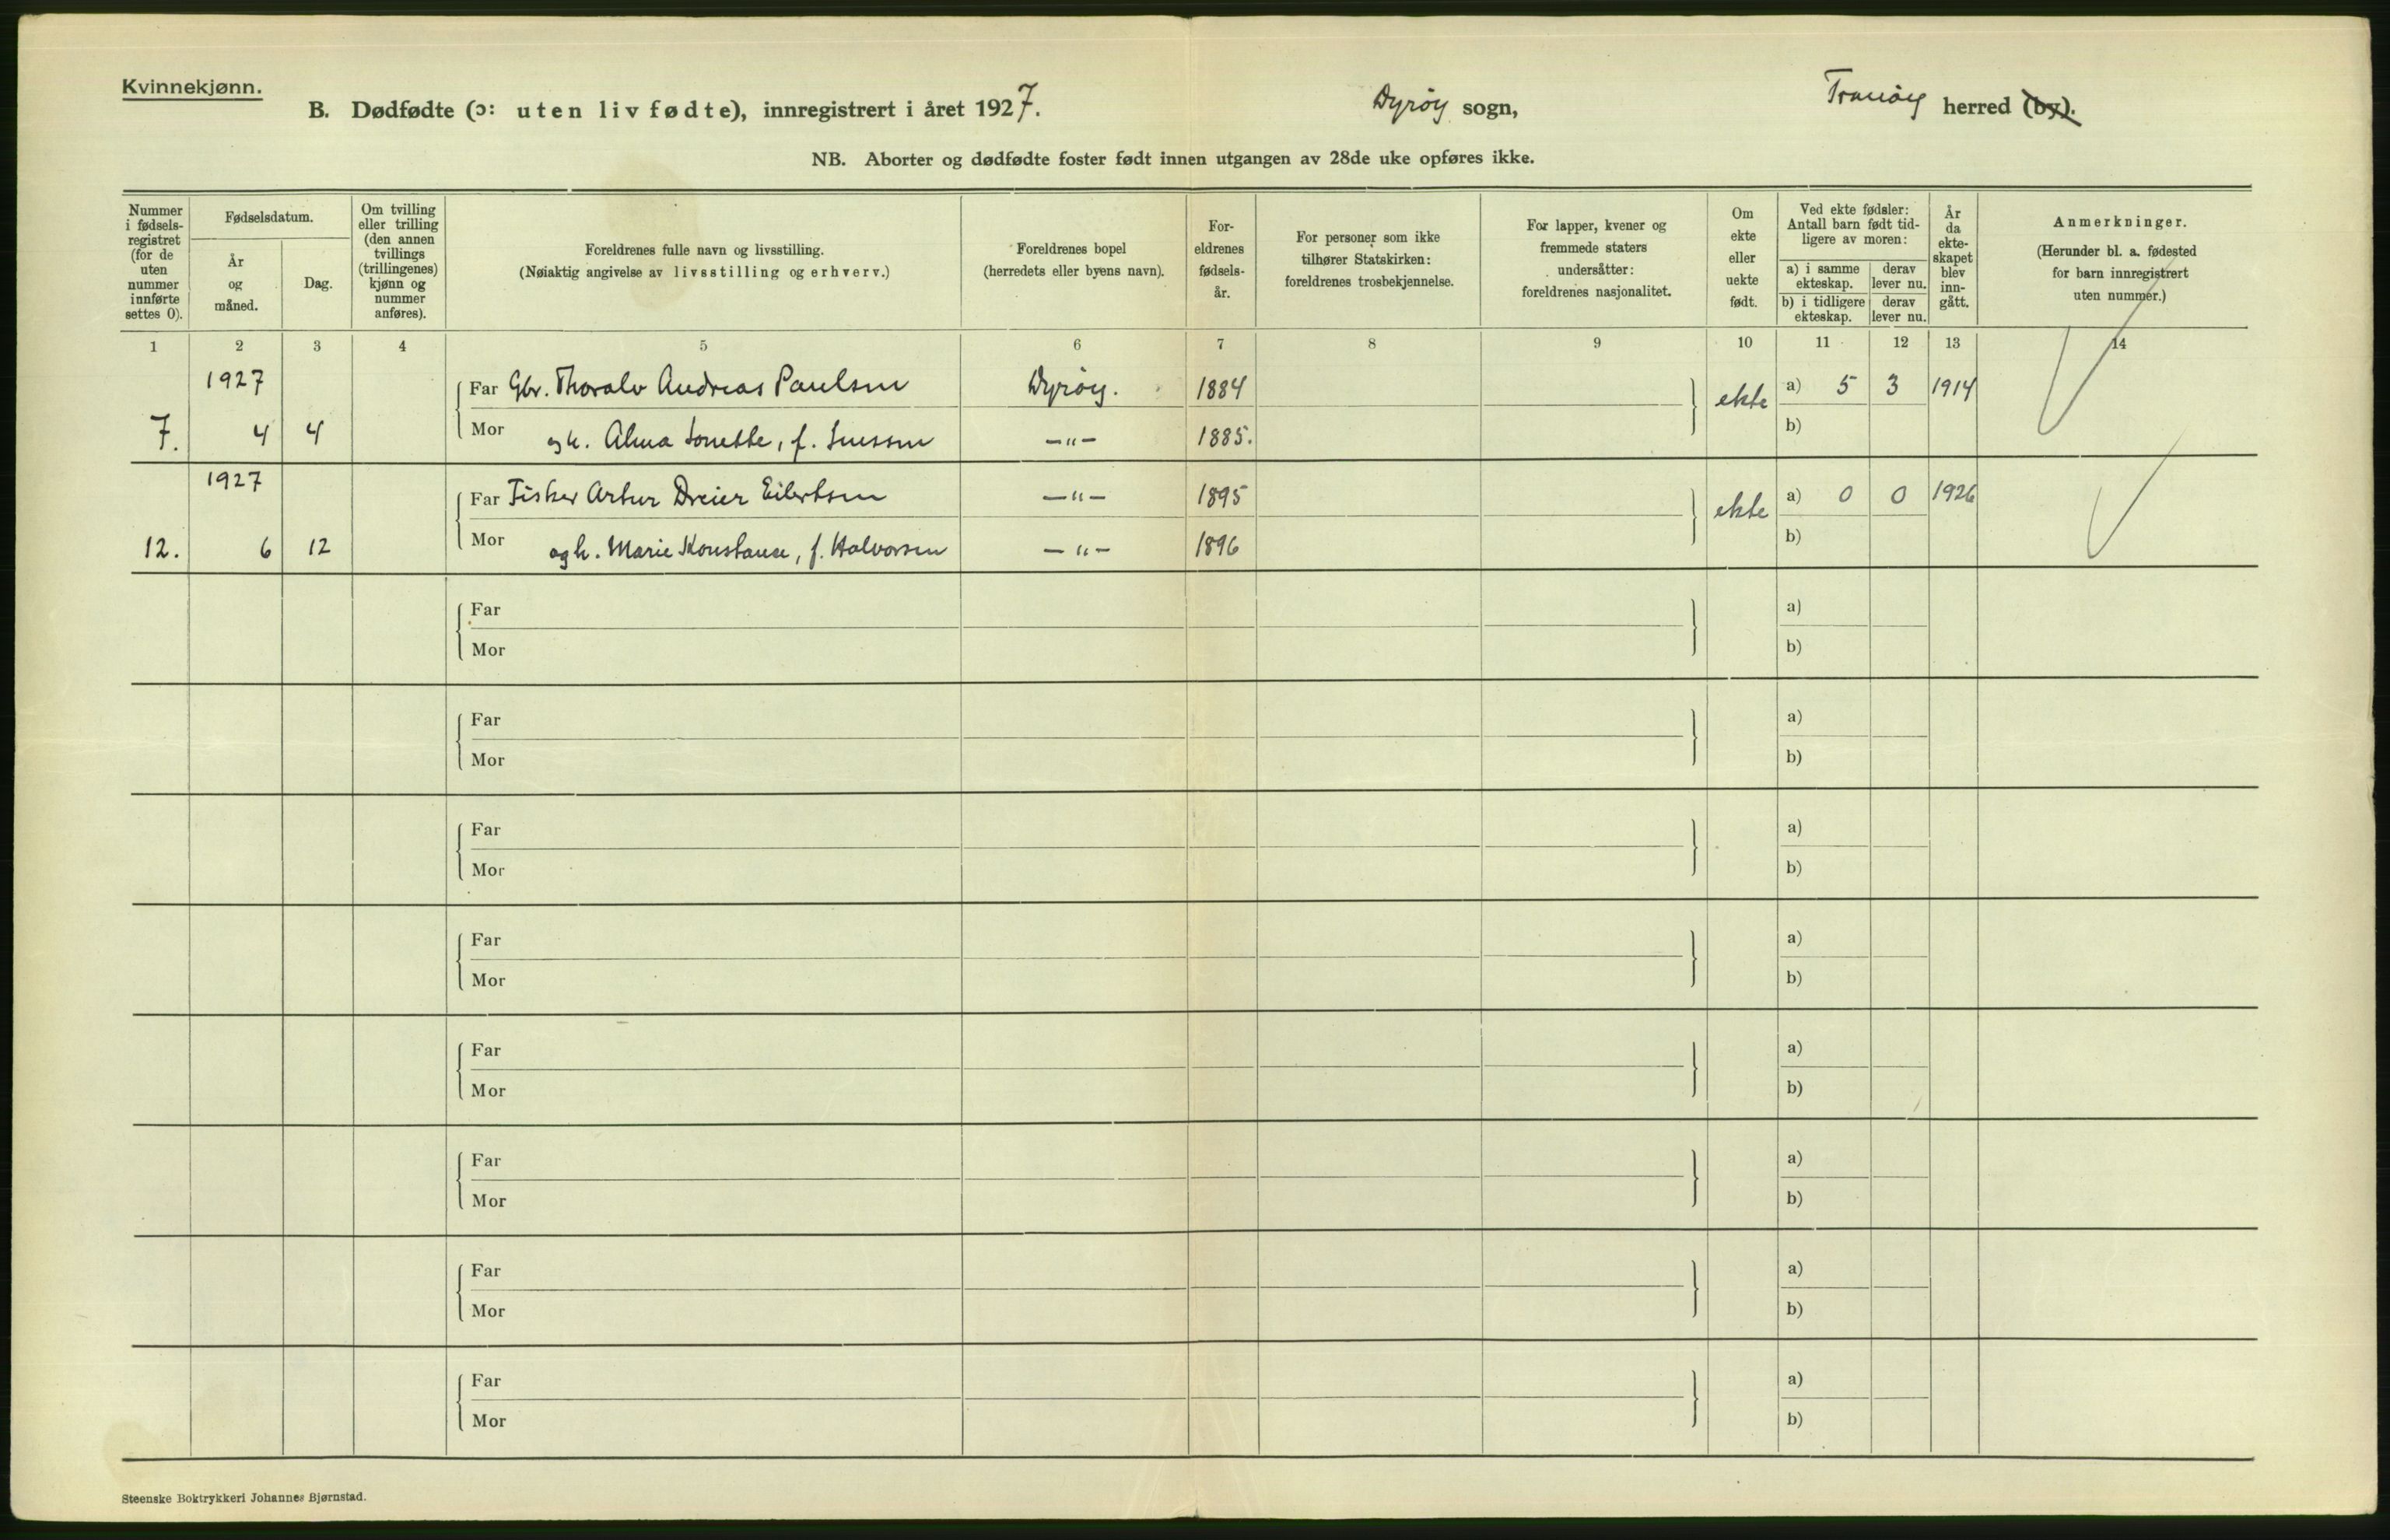 Kvinnekjønn.
B. Dødfødte (ɔ: uten liv fødte), innregistrert i året 1927. Dyrøy sogn, Tranøy herred (by).
NB. Aborter og dødfødte foster født innen utgangen av 28de uke opføres ikke.
Nummer i fødsels-registret (for de uten nummer innførte settes 0).
Fødselsdatum.
År og måned.
Dag.
Om tvilling eller trilling (den annen tvillings (trillingenes) kjønn og nummer anføres).
Foreldrenes fulle navn og livsstilling.
(Nøiaktig angivelse av livsstilling og erhverv.)
Foreldrenes bopel
(herredets eller byens navn).
For-eldrenes fødsels-år.
For personer som ikke tilhører Statskirken: foreldrenes trosbekjennelse.
For lapper, kvener og fremmede staters undersåtter: foreldrenes nasjonalitet.
Om ekte eller uekte født.
Ved ekte fødsler: Antall barn født tid-ligere av moren:
a) i samme ekteskap.
derav lever nu.
b) i tidligere ekteskap.
derav lever nu.
År da ekte-skapet blev inn-gått.
Anmerkninger.
(Herunder bl. a. fødested for barn innregistrert uten nummer.)
1 2 3 4 5 6 7 8 9 10 11 12 13 14
1927
Far Gbr. Thoralv Andreas Paulsen Dyrøy. 1884 ekte a) 5 3 1914
7. 4 4 Mor og h. Alma f. 1885. b)
1927
Far Fisker Artur Dreier Eilertsen —"— 1895 ekte a) 0 0 1926
12. 6 12 Mor og h. Marie Konstanse, f. Halvorsen —"— 1896 b)
Far a)
Mor b)
Far a)
Mor b)
Far a)
Mor b)
Far a)
Mor b)
Far a)
Mor b)
Far a)
Mor b)
Far a)
Mor b)
Far a)
Mor b)
Steenske Boktrykkeri Johannes Bjørnstad.